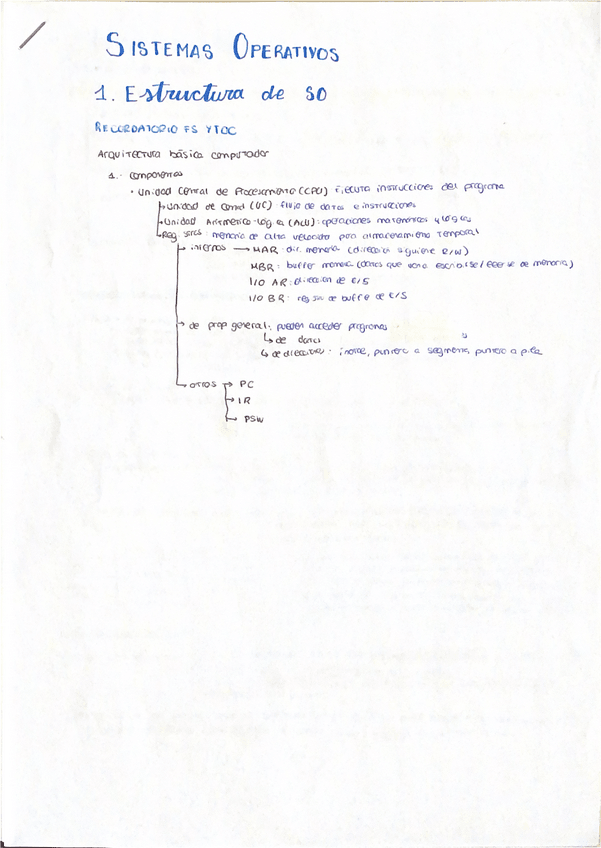 SISTEMAS OPERATIVOS
1. Estructura de SO
RECORDATORIO FS Y TOC
Arquitectura básica computador
1.- Componentes
• Unidad Central de Procesamiento (CPU) Ejecuta instrucciones del programa
→ Unidad de Control (UC): flujo de datos e instrucciones
→ Unidad Aritmético-lógica (ALU): operaciones matemáticas y lógicas
→ Registros: memoria de alta velocidad para almacenamiento temporal
→ internos → MAR: dir. memoria (dirección siguiente R/W)
MBR: buffer memoria (datos que van a escribirse/leerse de memoria)
I/O AR: dirección de E/S
I/O BR: registro de buffer de E/S
→ de prop general: pueden acceder programas
↳ de datos
↳ de direcciones: índice, puntero a segmento, puntero a pila
→ otros → PC
→ IR
→ PSW